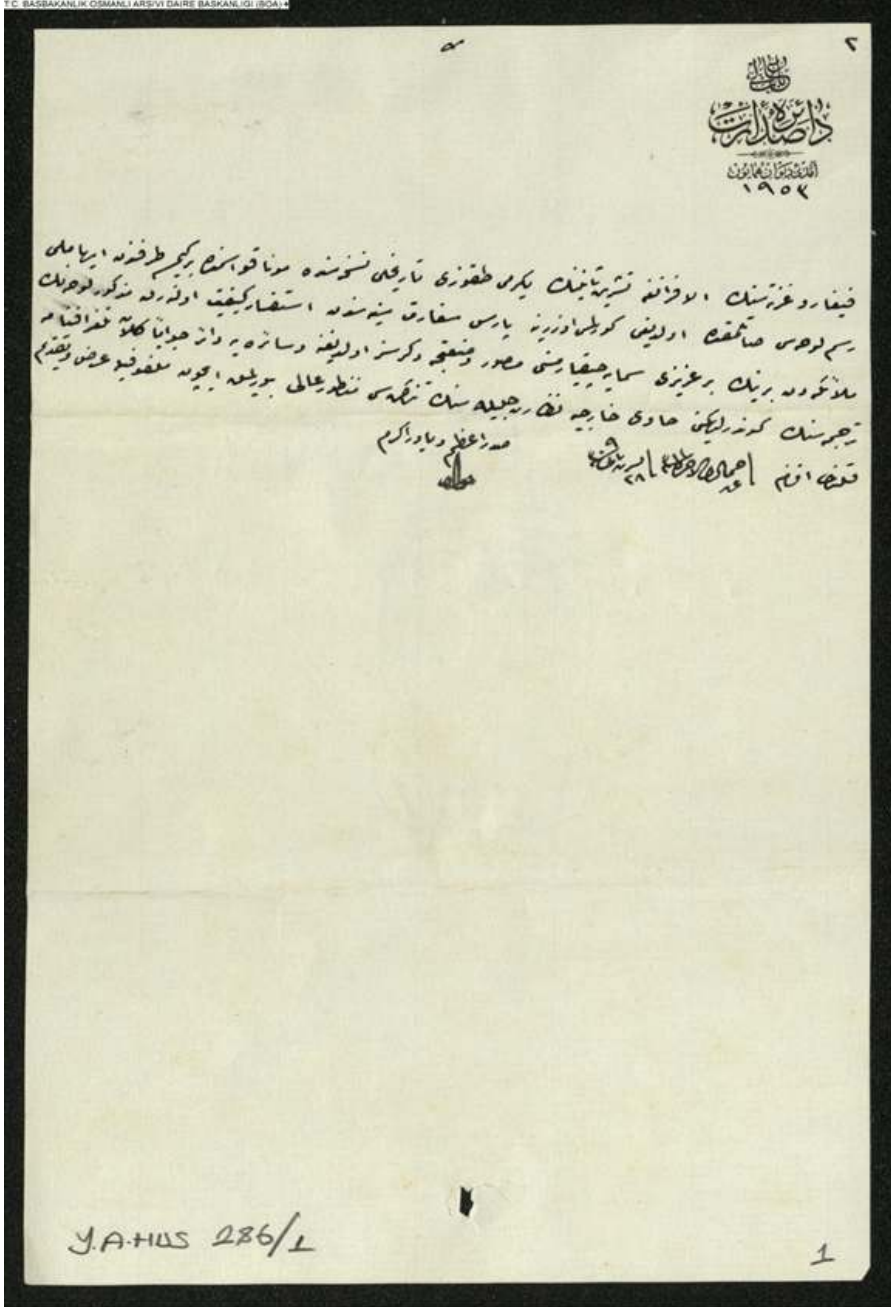 T.C. BASBAKANLIK OSMANLI ARSIVI DAIRE BASKANLIGI (BOA)
٢
باب عالی
دائرهٔ صدارت
آمدی دیوان همایون
١٩٥٣
فیغارو غزته‌سنك الافرانغه تشرین ثانینك یكرمی طقوزی تاریخلی نسخه‌سنده موناقو طرفندن
رسم لوحه‌سی صاتلمقده اولدیغی كورلمسی اوزرینه پارس سفارت سنیه‌سندن استفسار كیفیت اولنه‌رق مذكور لوحه‌نك
ملائكه‌دن برینك بر عزیزی سمایه چیقارمسنی مصور اولدیغنه و سائره‌یه دائر جواباً كلان تلغرافنامه
ترجمه‌سنك كوندرلدیكنی حاوی خارجیه نظارت جلیله‌سنك تذكره‌سی منظور عالی بیورلمق ایچون ملفوفیله عرض و تقدیم
قلنمشدر افندم
صدر اعظم و یاور اكرم
جواد
Y.A.HUS 286/1
1